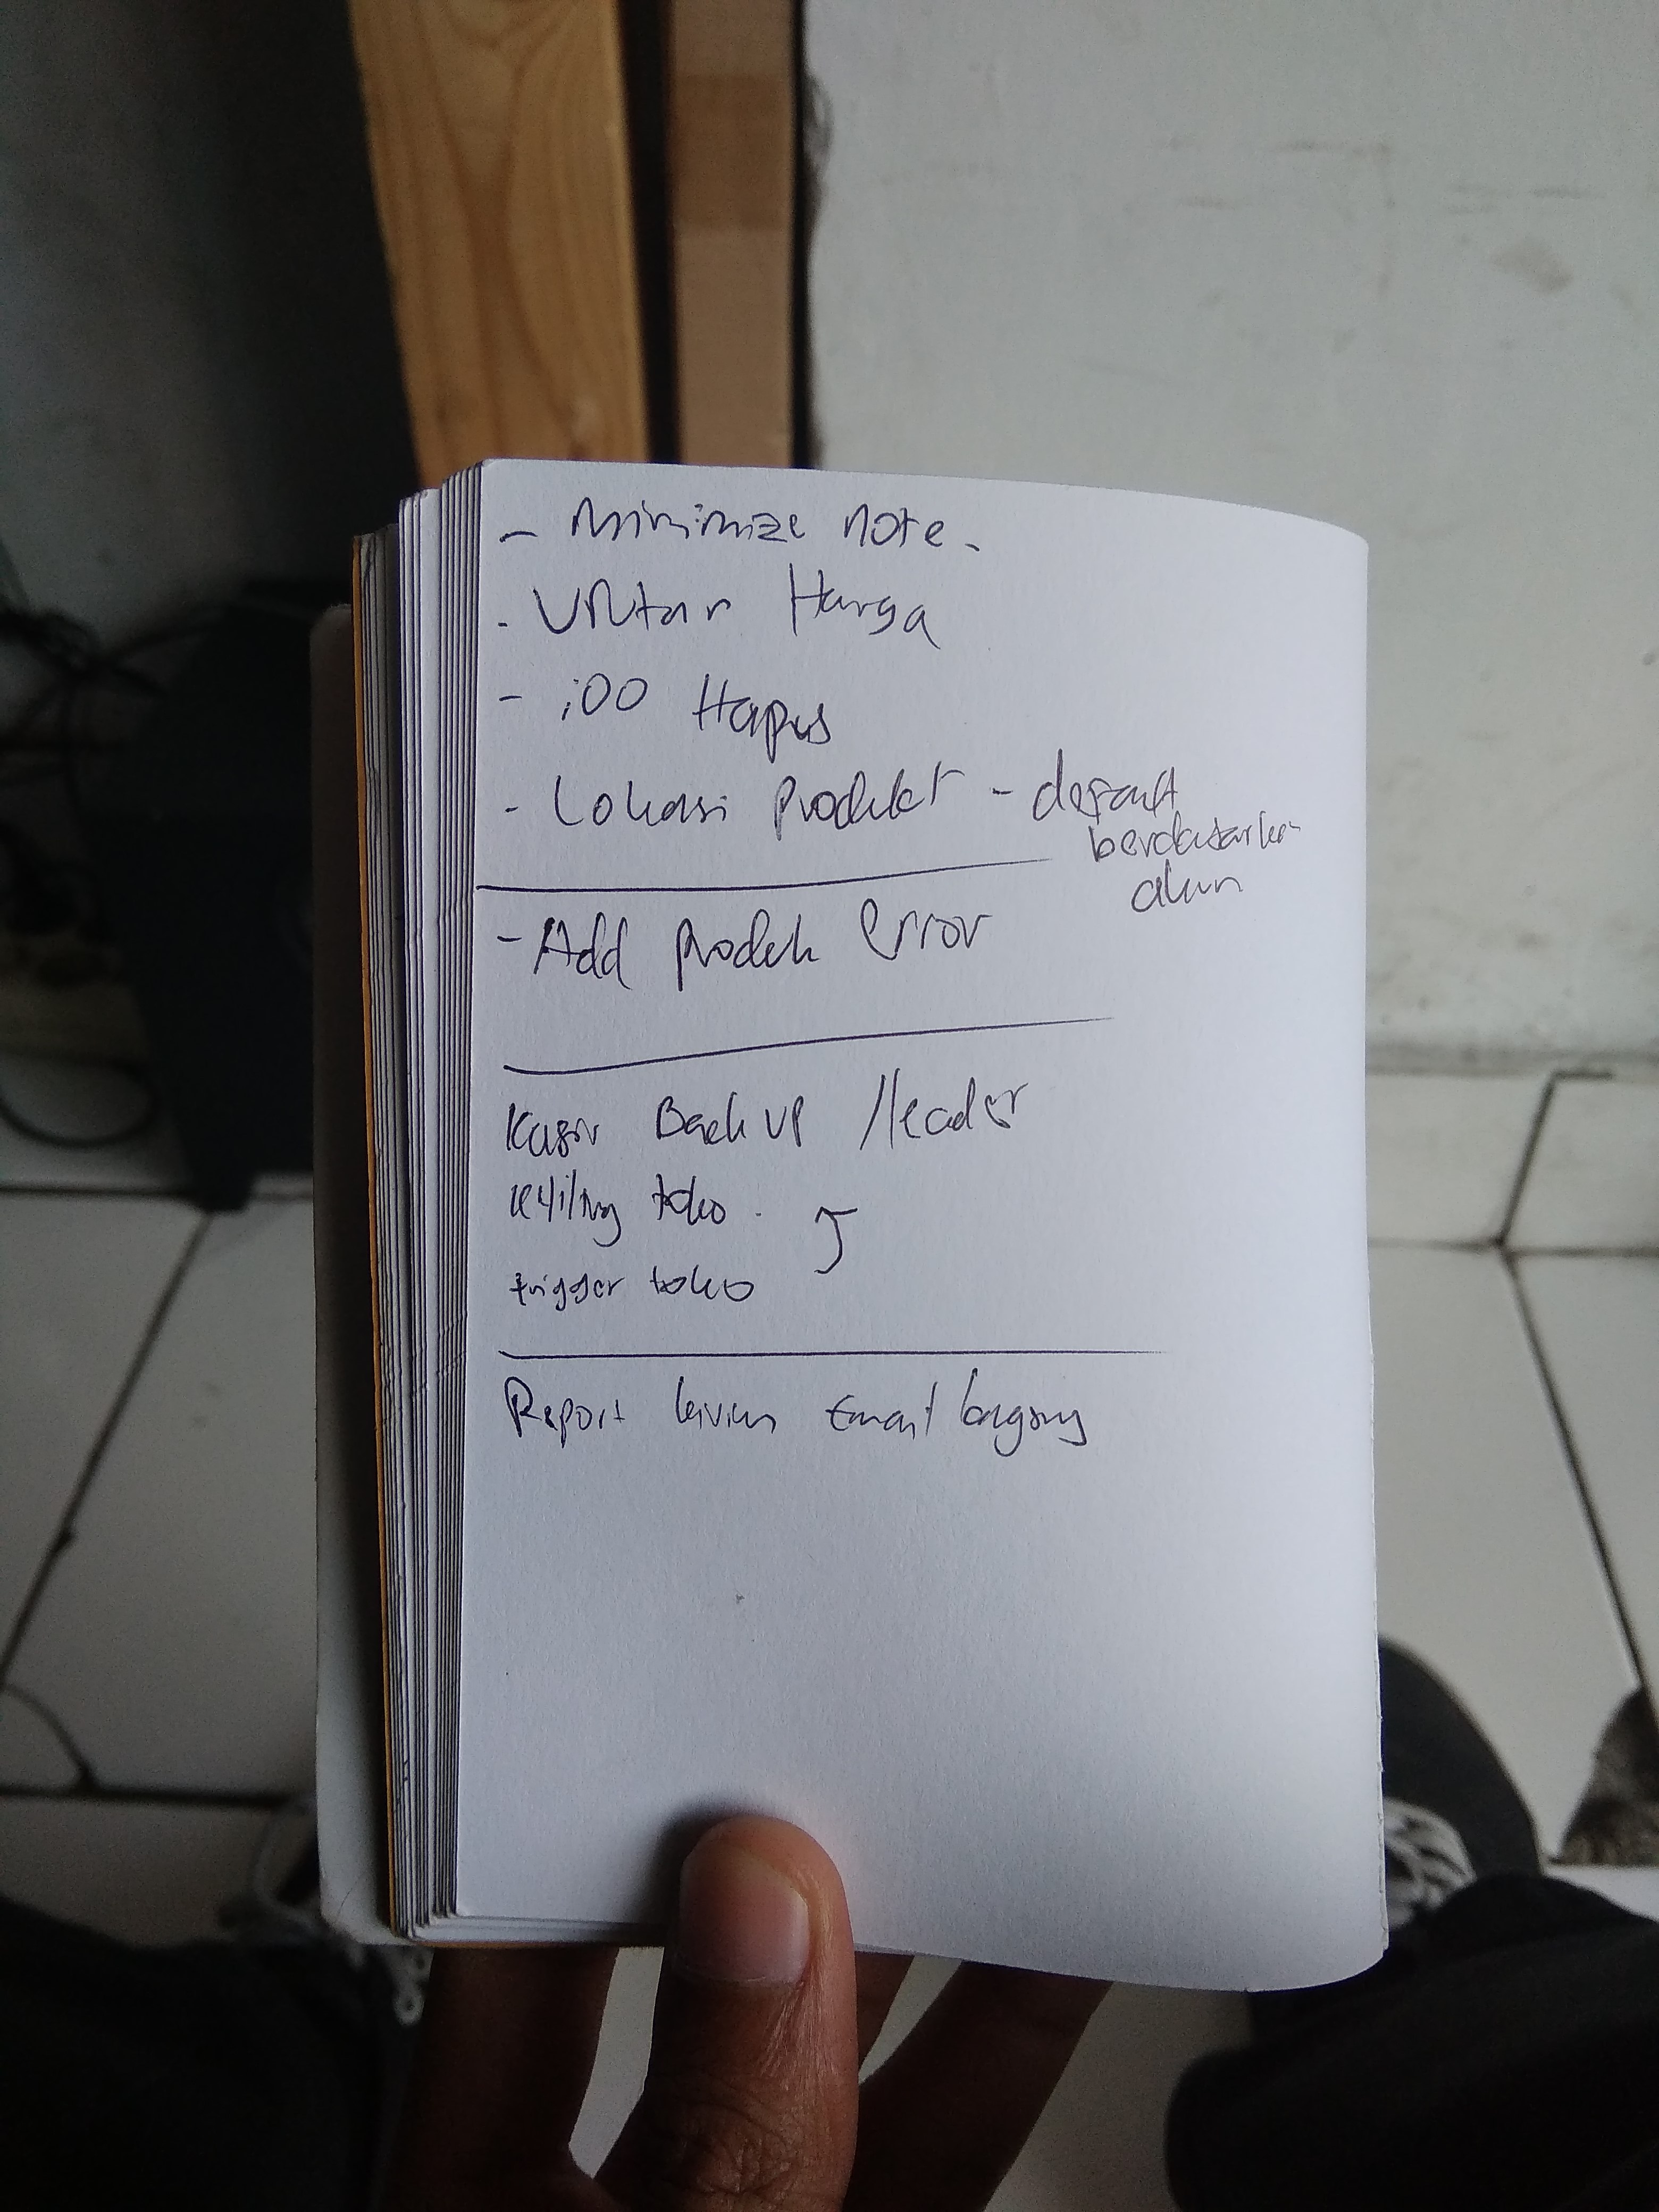 - Minimize note.
- Untar Harga
- ;00 Hapus
- Lokasi Produk - default
berdasarkan
akun
- Add produk error
Kasir Back up /leader
keliling toko.
trigger toko
Report kirim Email langsung